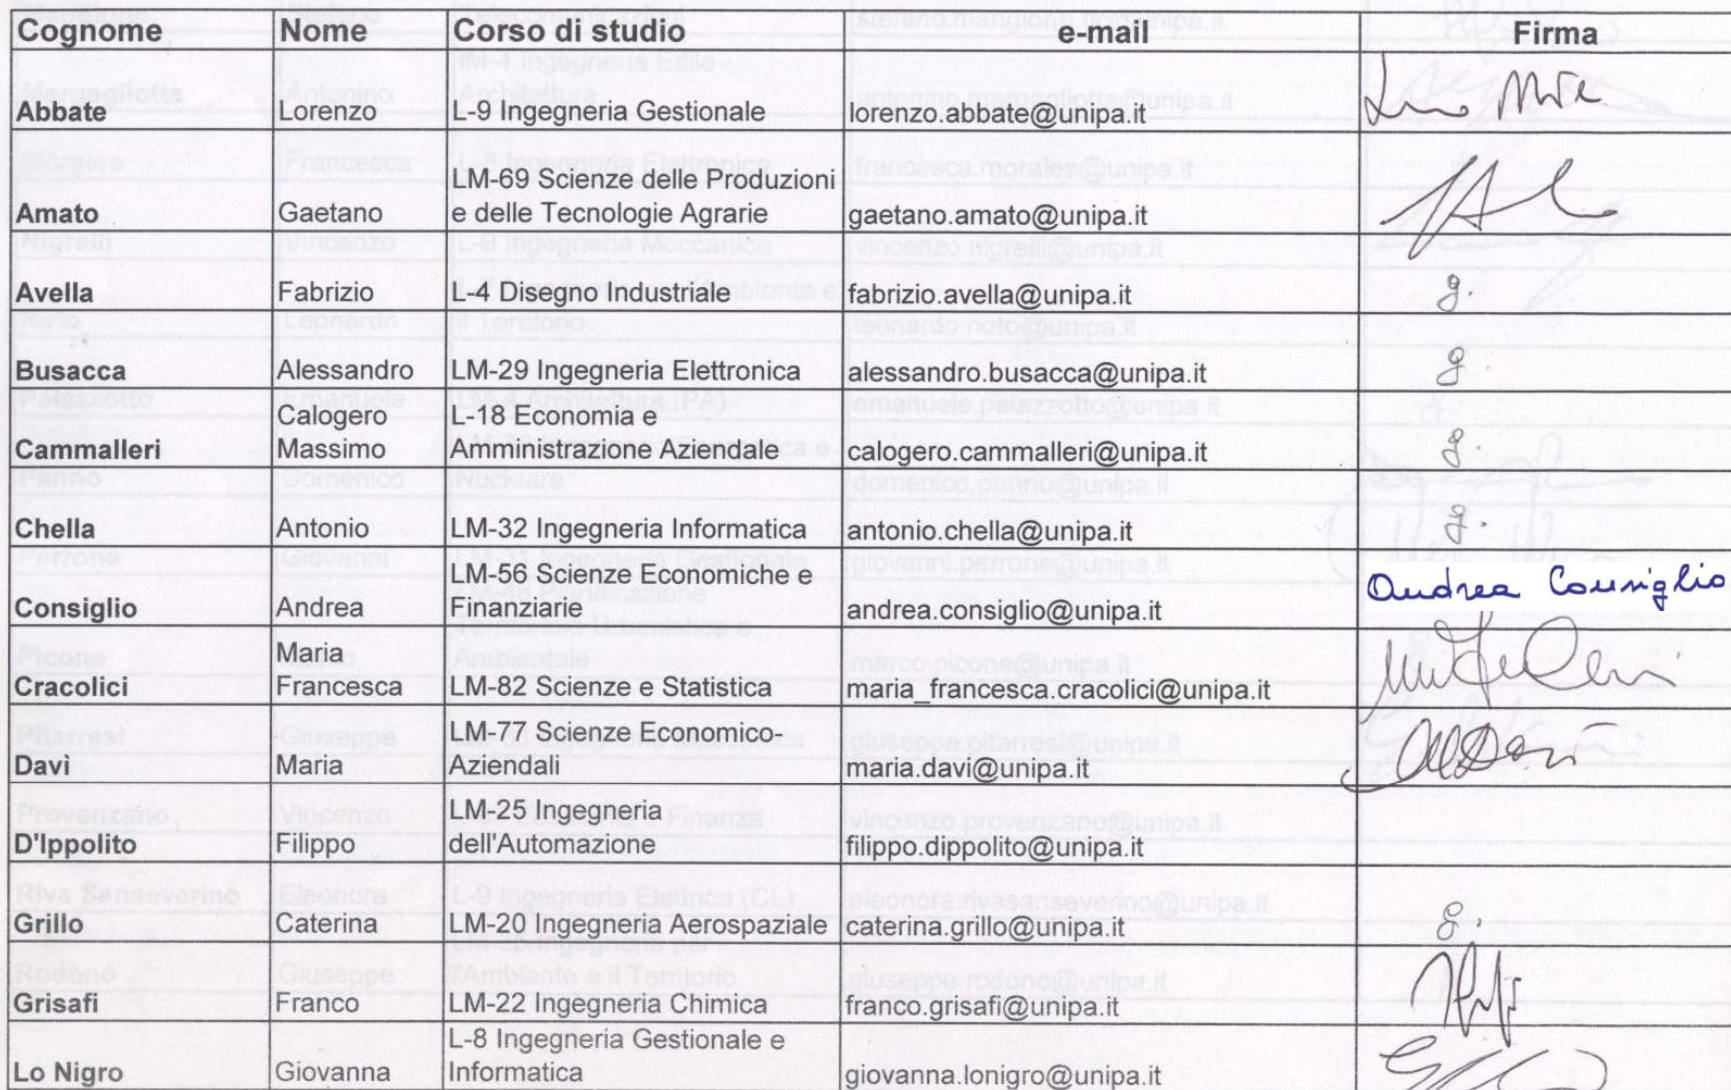 Cognome Nome Corso di studio e-mail Firma
Abbate Lorenzo L-9 Ingegneria Gestionale lorenzo.abbate@unipa.it
LM-69 Scienze delle Produzioni
Amato Gaetano e delle Tecnologie Agrarie gaetano.amato@unipa.it
Avella Fabrizio L-4 Disegno Industriale fabrizio.avella@unipa.it g.
Busacca Alessandro LM-29 Ingegneria Elettronica alessandro.busacca@unipa.it g.
Calogero L-18 Economia e
Cammalleri Massimo Amministrazione Aziendale calogero.cammalleri@unipa.it g.
Chella Antonio LM-32 Ingegneria Informatica antonio.chella@unipa.it
LM-56 Scienze Economiche e
Consiglio Andrea Finanziarie andrea.consiglio@unipa.it Andrea Consiglio
Maria
Cracolici Francesca LM-82 Scienze e Statistica maria_francesca.cracolici@unipa.it
LM-77 Scienze Economico-
Davì Maria Aziendali maria.davi@unipa.it
LM-25 Ingegneria
D'Ippolito Filippo dell'Automazione filippo.dippolito@unipa.it
Grillo Caterina LM-20 Ingegneria Aerospaziale caterina.grillo@unipa.it g.
Grisafi Franco LM-22 Ingegneria Chimica franco.grisafi@unipa.it
L-8 Ingegneria Gestionale e
Lo Nigro Giovanna Informatica giovanna.lonigro@unipa.it